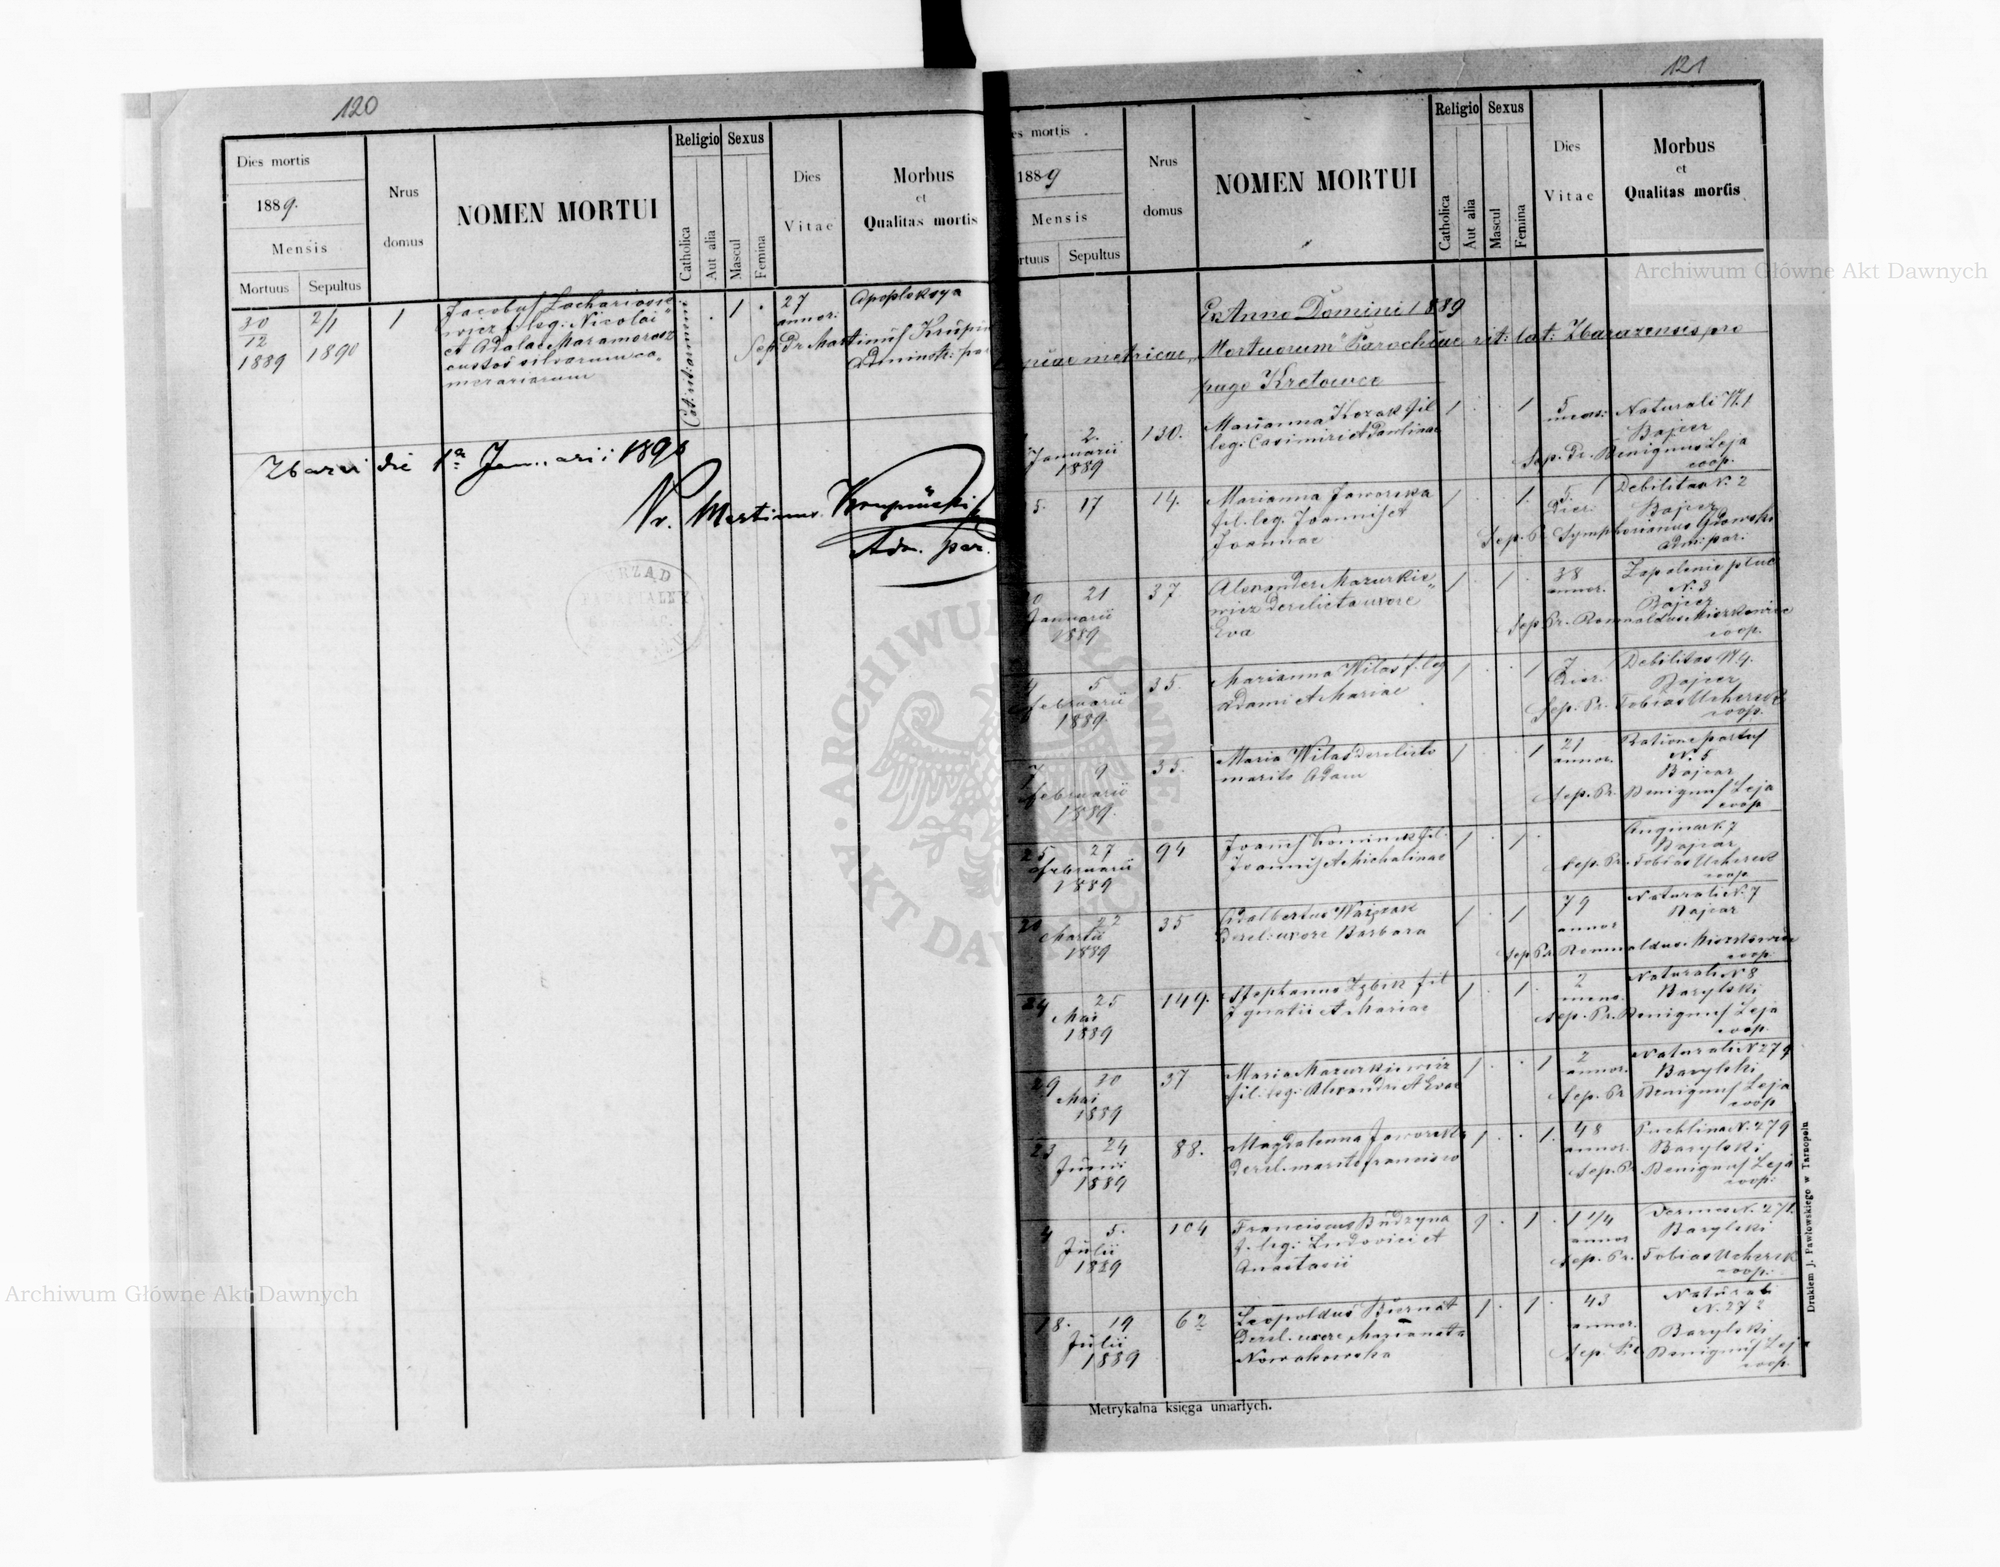 120
Dies mortis
1889.
Mensis
Mortuus
Sepultus
Nrus
domus
NOMEN MORTUI
Religio
Catholica
Aut alia
Sexus
Mascul
Femina
Dies
Vitae
Morbus
et
Qualitas mortis
30
12
1889
2/1
1890
1
Jacobus
f. leg. Nicolai
custos silvarum
1
27
annor:
Apoplekxya
Sep. Dr Martinus
Zbarai die 1a Januarii 1890
Martinus Krupiński
Adm. par.
121
Dies mortis
1889
Mensis
Mortuus
Sepultus
Nrus
domus
NOMEN MORTUI
Religio
Catholica
Aut alia
Sexus
Mascul
Femina
Dies
Vitae
Morbus
et
Qualitas mortis
Ex Anno Domini 1889
Copiae metricae Mortuorum Parochiae rit: lat: Zbarazensis pro
pago Kretowce
2.
Januarii
1889
130.
Marianna Kozak fil
leg: Casimiri et Paulinae
1
1
5
mens:
Naturali N. 1
Bajcer
Sep. Pr. Benignus Leja
coop.
5.
17
14.
Marianna Jaworska
fil. leg. Joannis et
Joannae
1
1.
5.
Dier.
Debilitas N. 2
Bajcer
Sep. Pr. Symphorianus
adm: par:
20
21
Januarii
1889
37
Alexander Mazurkie-
wicz derelicta uxore
Eva
1
1
38
annor.
Zapalenie płuc
N. 3
Bajcer
Sep Pr. Romualdus
coop.
4
5
Februarii
1889.
35.
Marianna Witas f. leg
Adami et Mariae
1
1
7
Dier.
Debilitas N 4.
Bajcer
Sep. Pr. Tobias Ucherek
coop.
7
9
Februarii
1889.
35.
Maria Witas derelicto
marito Adam
1
1
21
annor.
Ratione partus
N. 5
Bajcar
Sep. Pr. Benignus Leja
coop
25
27
Februarii
1889
94
Joannis et Michalinae
1
1
Bajcar
Sep. Pr. Tobias Ucherek
coop
20
22
Martii
1889
35
Adalbertus
Derel: uxore Barbara
1
1
79
annor
Naturali N. 7
Bajcar
Sep Pr. Romualdus
coop.
24
25
Mai
1889
149.
Stephanus Zębik fil
Ignatii et Mariae
1
1
2
mens.
Naturali N 8
Barylski
Sep. Pr. Benignus Leja
coop.
29
30
Mai
1889
37
Maria Mazurkiewicz
fil. leg: Alexandri et Evae
1
1
2
annor.
Naturali N 279
Barylski
Sep. Pr Benignus Leja
coop
23
24
Junii
1889
88.
Magdalenna Jaworska
Derel. marito francisco
1
1.
48
annor.
Puchlina N. 279
Barylski
Sep. Pr Benignus Leja
coop:
4
5.
Julii
1889
104
Franciscus Budzyna
f. leg: Ludovici et
Anastasii
1
1
1 1/4
annor
Barylski
Sep. Pr. Tobias Ucherek
coop:
18.
19
Julii
1889
62
Leopoldus Biernat
Derel. uxore Marianata
Nowakowska
1
1
43
annor.
Naturali
N. 272
Barylski
Sep. Pr. Benignus Leja
coop.
Metrykalna księga umarłych.
Drukiem J. Pawłowskiego w Tarnopolu
Archiwum Główne Akt Dawnych
Archiwum Główne Akt Dawnych
ARCHIWUM GŁÓWNE AKT DAWNYCH